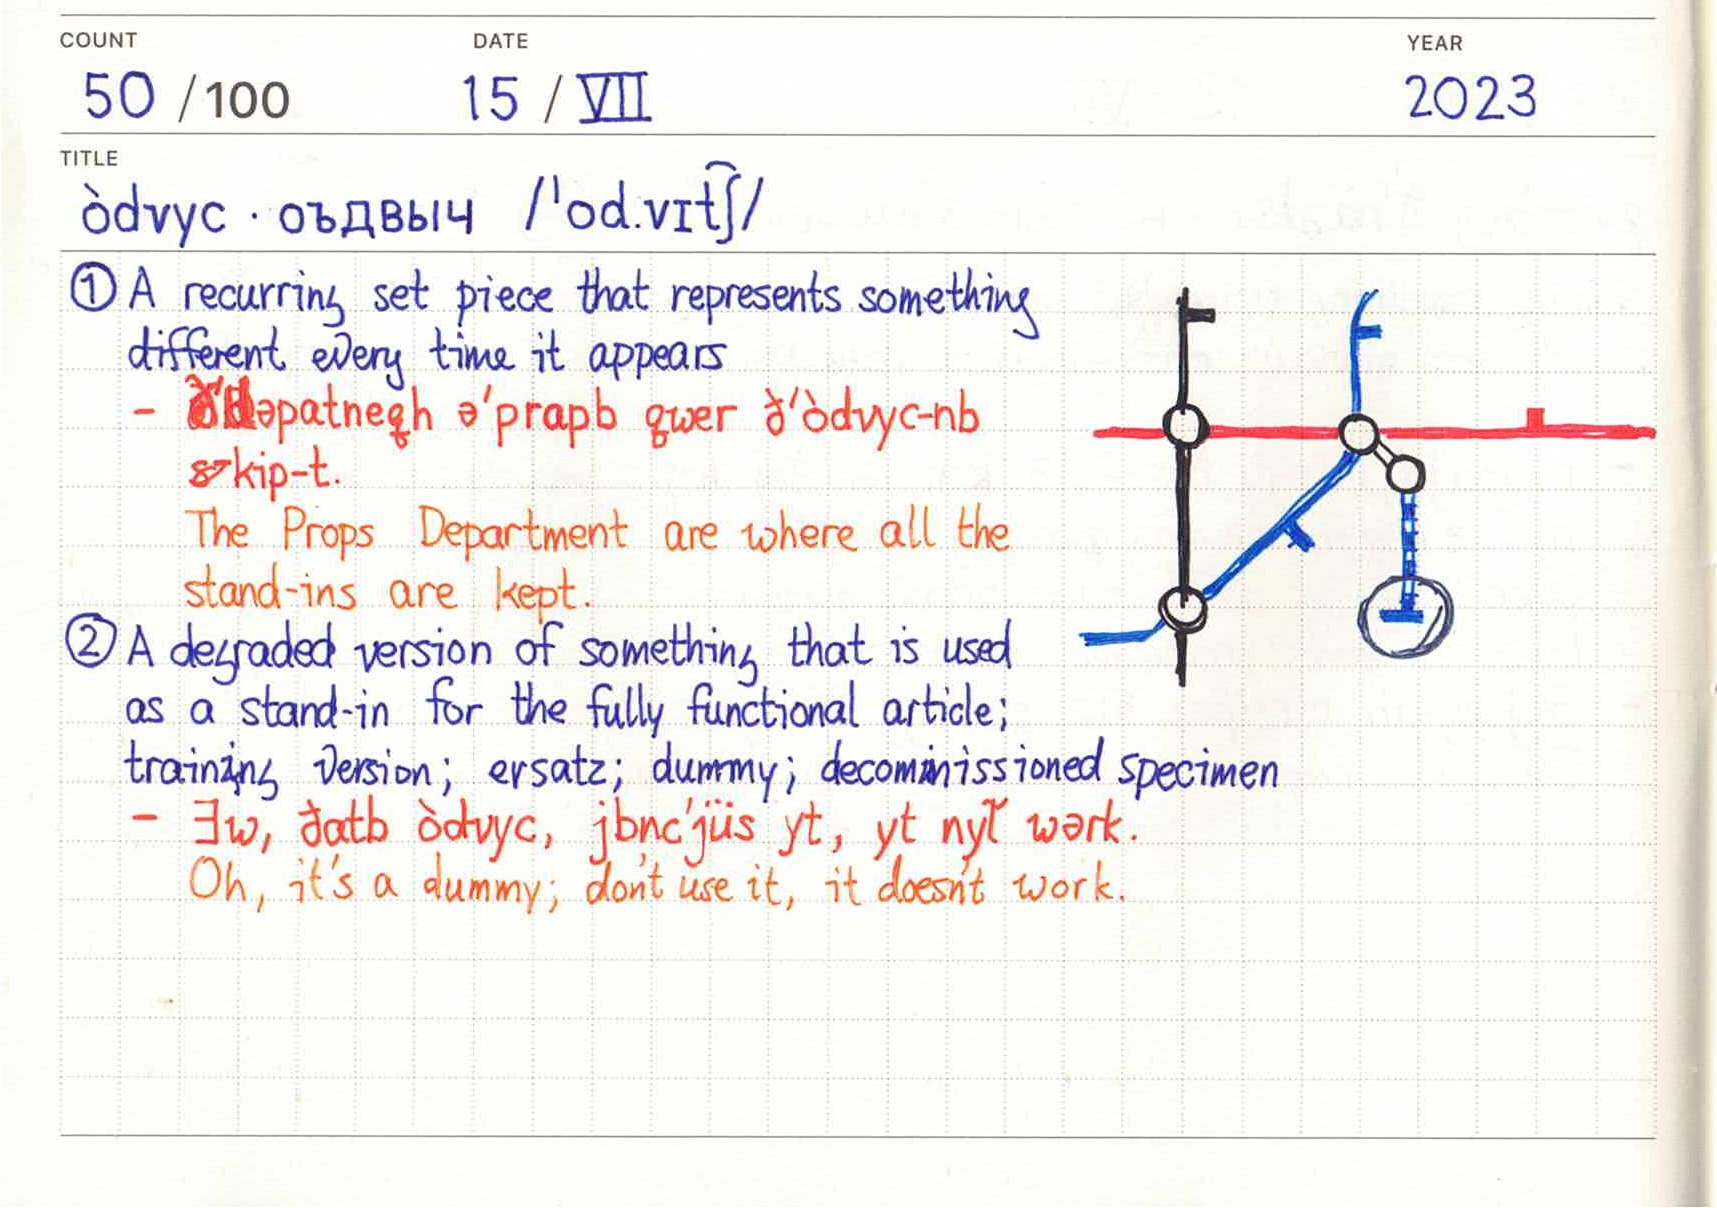 COUNT DATE YEAR
50 /100 15 / VII 2023
TITLE
òdvyc · оъдвыч /ˈod.vɪt͡ʃ/
① A recurring set piece that represents something
different every time it appears
- əpatneqh ə'prapb qwer ð'òdvyc-nb
kip-t.
The Props Department are where all the
stand-ins are kept.
② A degraded version of something that is used
as a stand-in for the fully functional article;
training version; ersatz; dummy; decommissioned specimen
- Ǝw, ðatb òdvyc, jbnc'jüs yt, yt nyt̃ wərk.
Oh, it's a dummy; don't use it, it doesn't work.